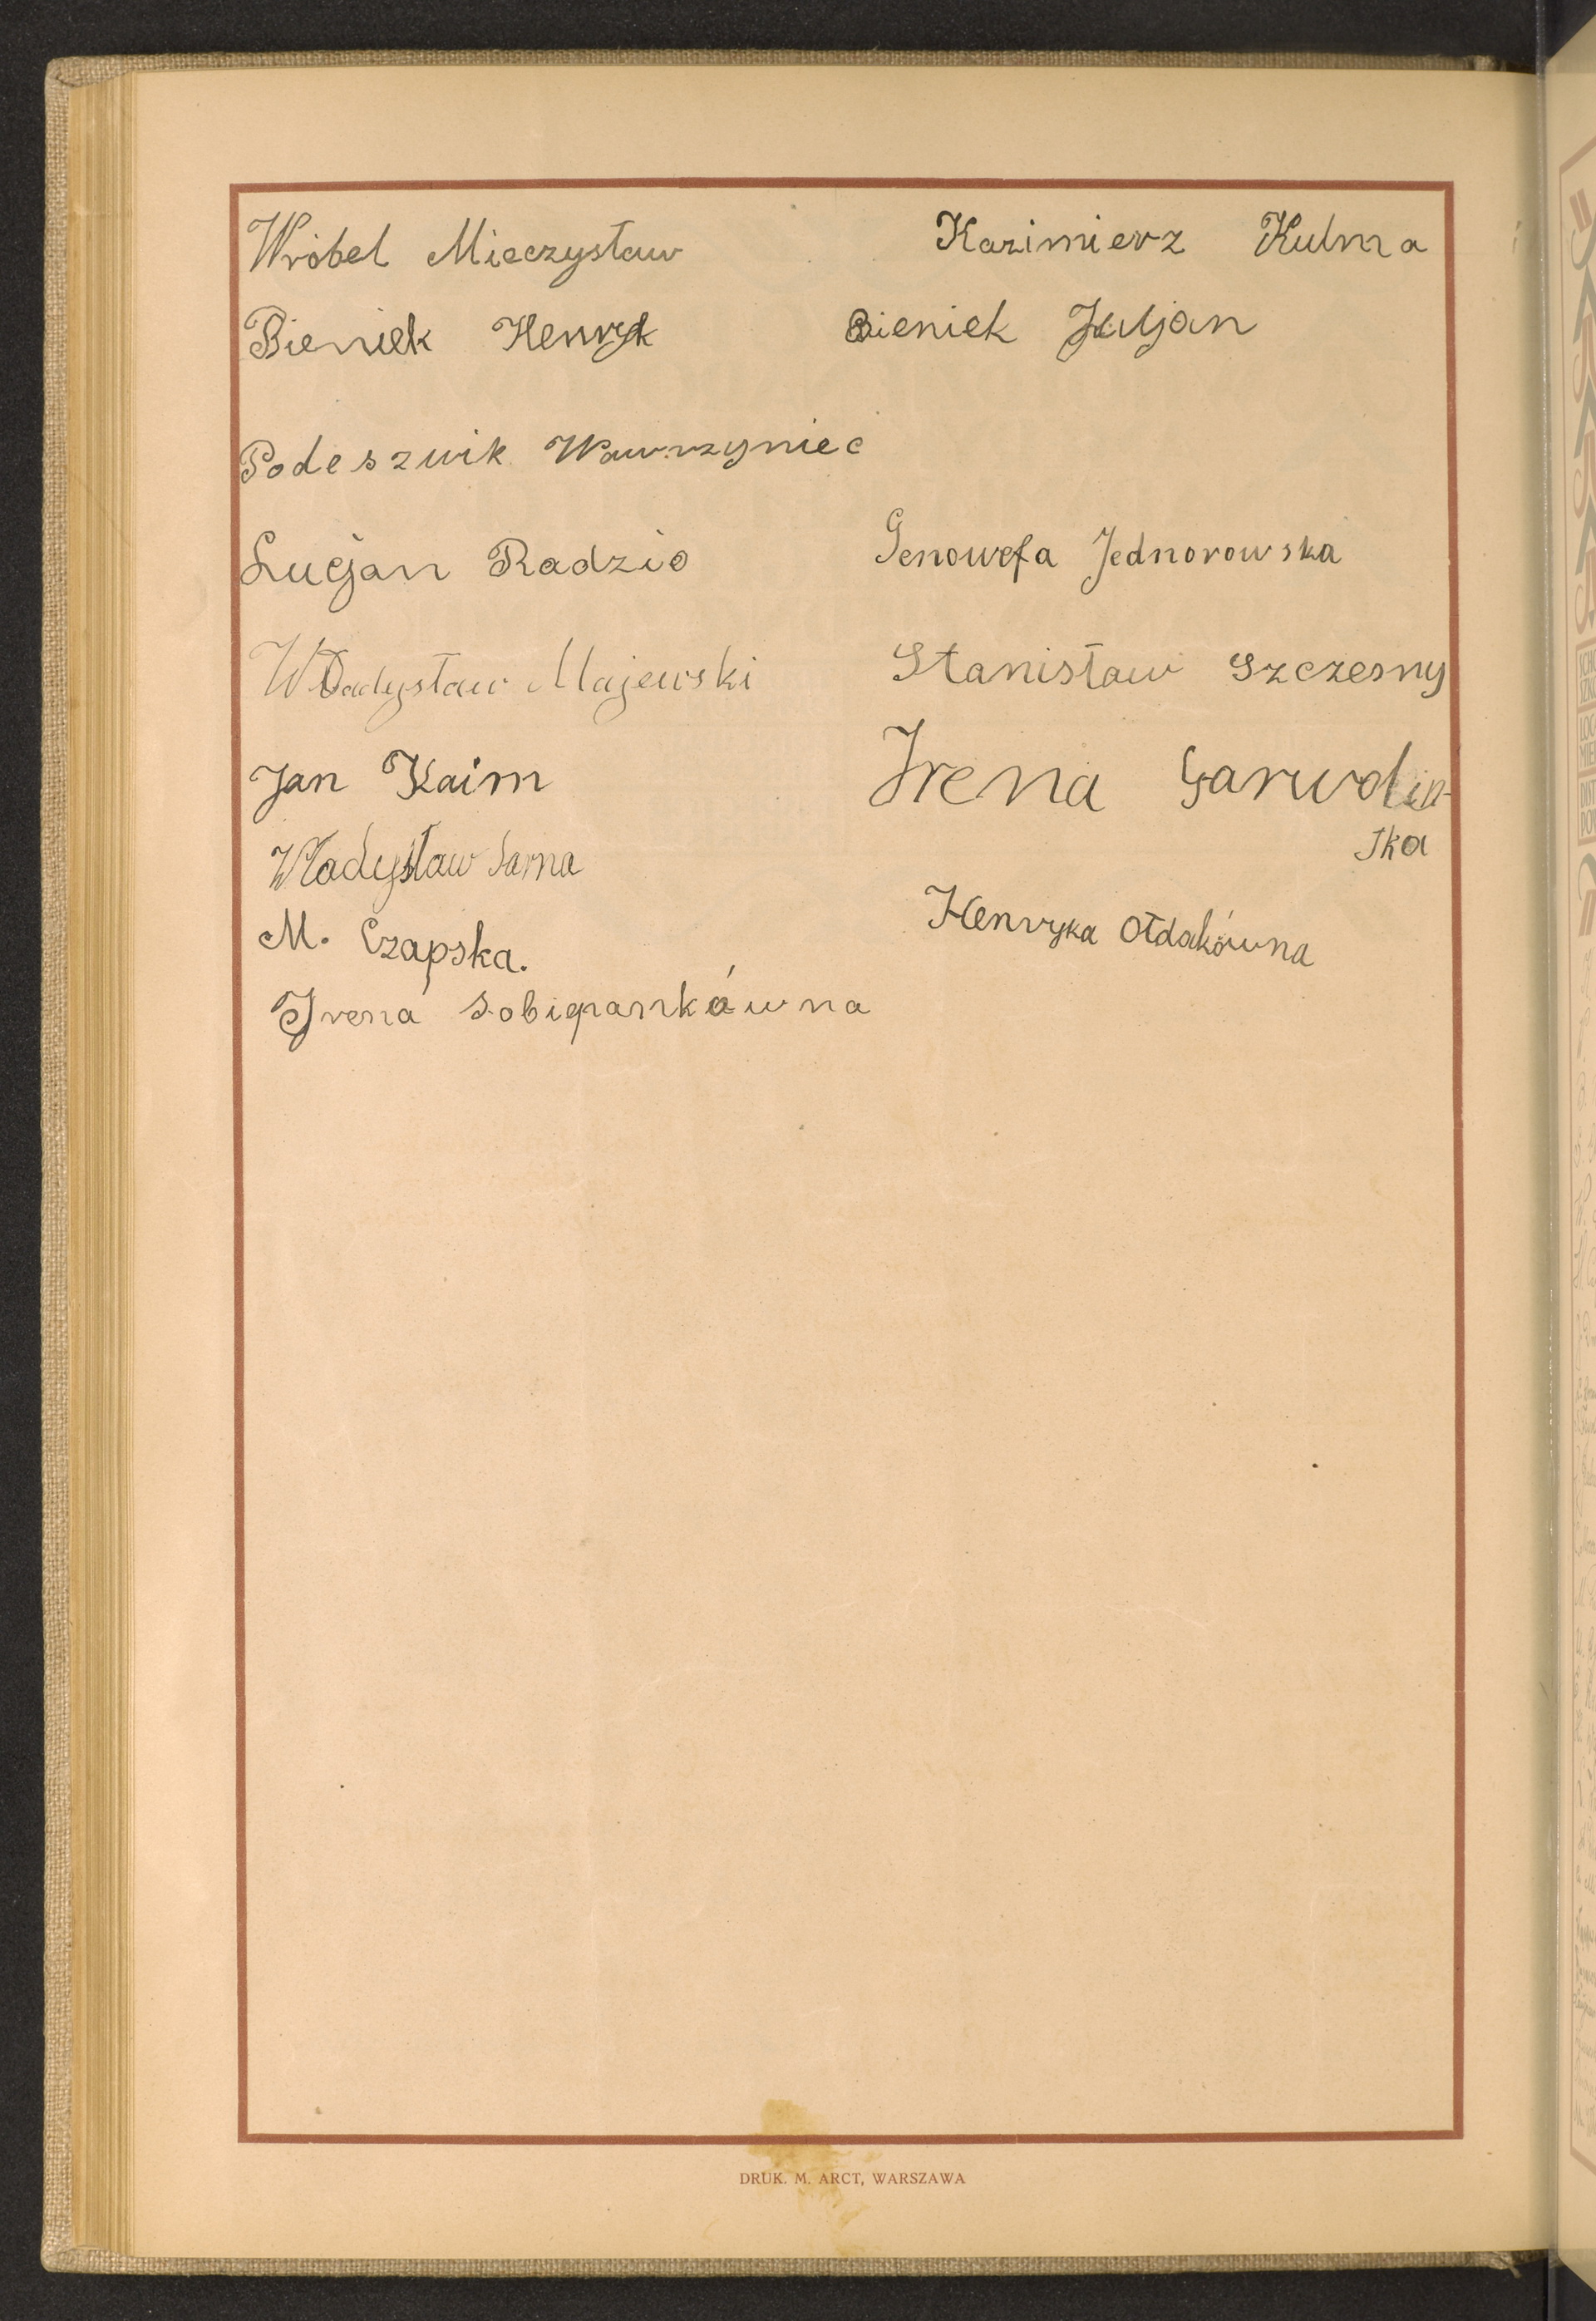 Wróbel Mieczysław Kazimierz Kulma
Bieniek Henryk Bieniek Juljan
Podeszwik Wawrzyniec
Lucjan Radzio Genowefa Jednorowska
Władysław Majewski Stanisław Szczesny
Jan Kaim Irena Garwolin-
ska
Władysław Sarna
M. Czapska. Henryka Ołdakówna
Irena Sobiepankówna
DRUK. M. ARCT, WARSZAWA